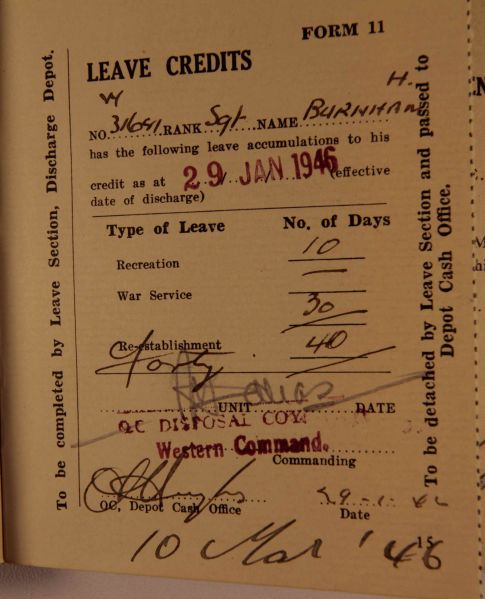 FORM 11
LEAVE CREDITS
W H.
NO. 31641 RANK Sgt NAME BURNHAM
has the following leave accumulations to his
credit as at 29 JAN 1946 (effective
date of discharge)
Type of Leave No. of Days
Recreation 10
War Service —
30
Re-establishment 40
Forty
UNIT DATE
OC DISPOSAL COY
Western Command.
Commanding
OC, Depot Cash Office Date
10 Mar '46
15
To be completed by Leave Section, Discharge Depot.
To be detached by Leave Section and passed to
Depot Cash Office.